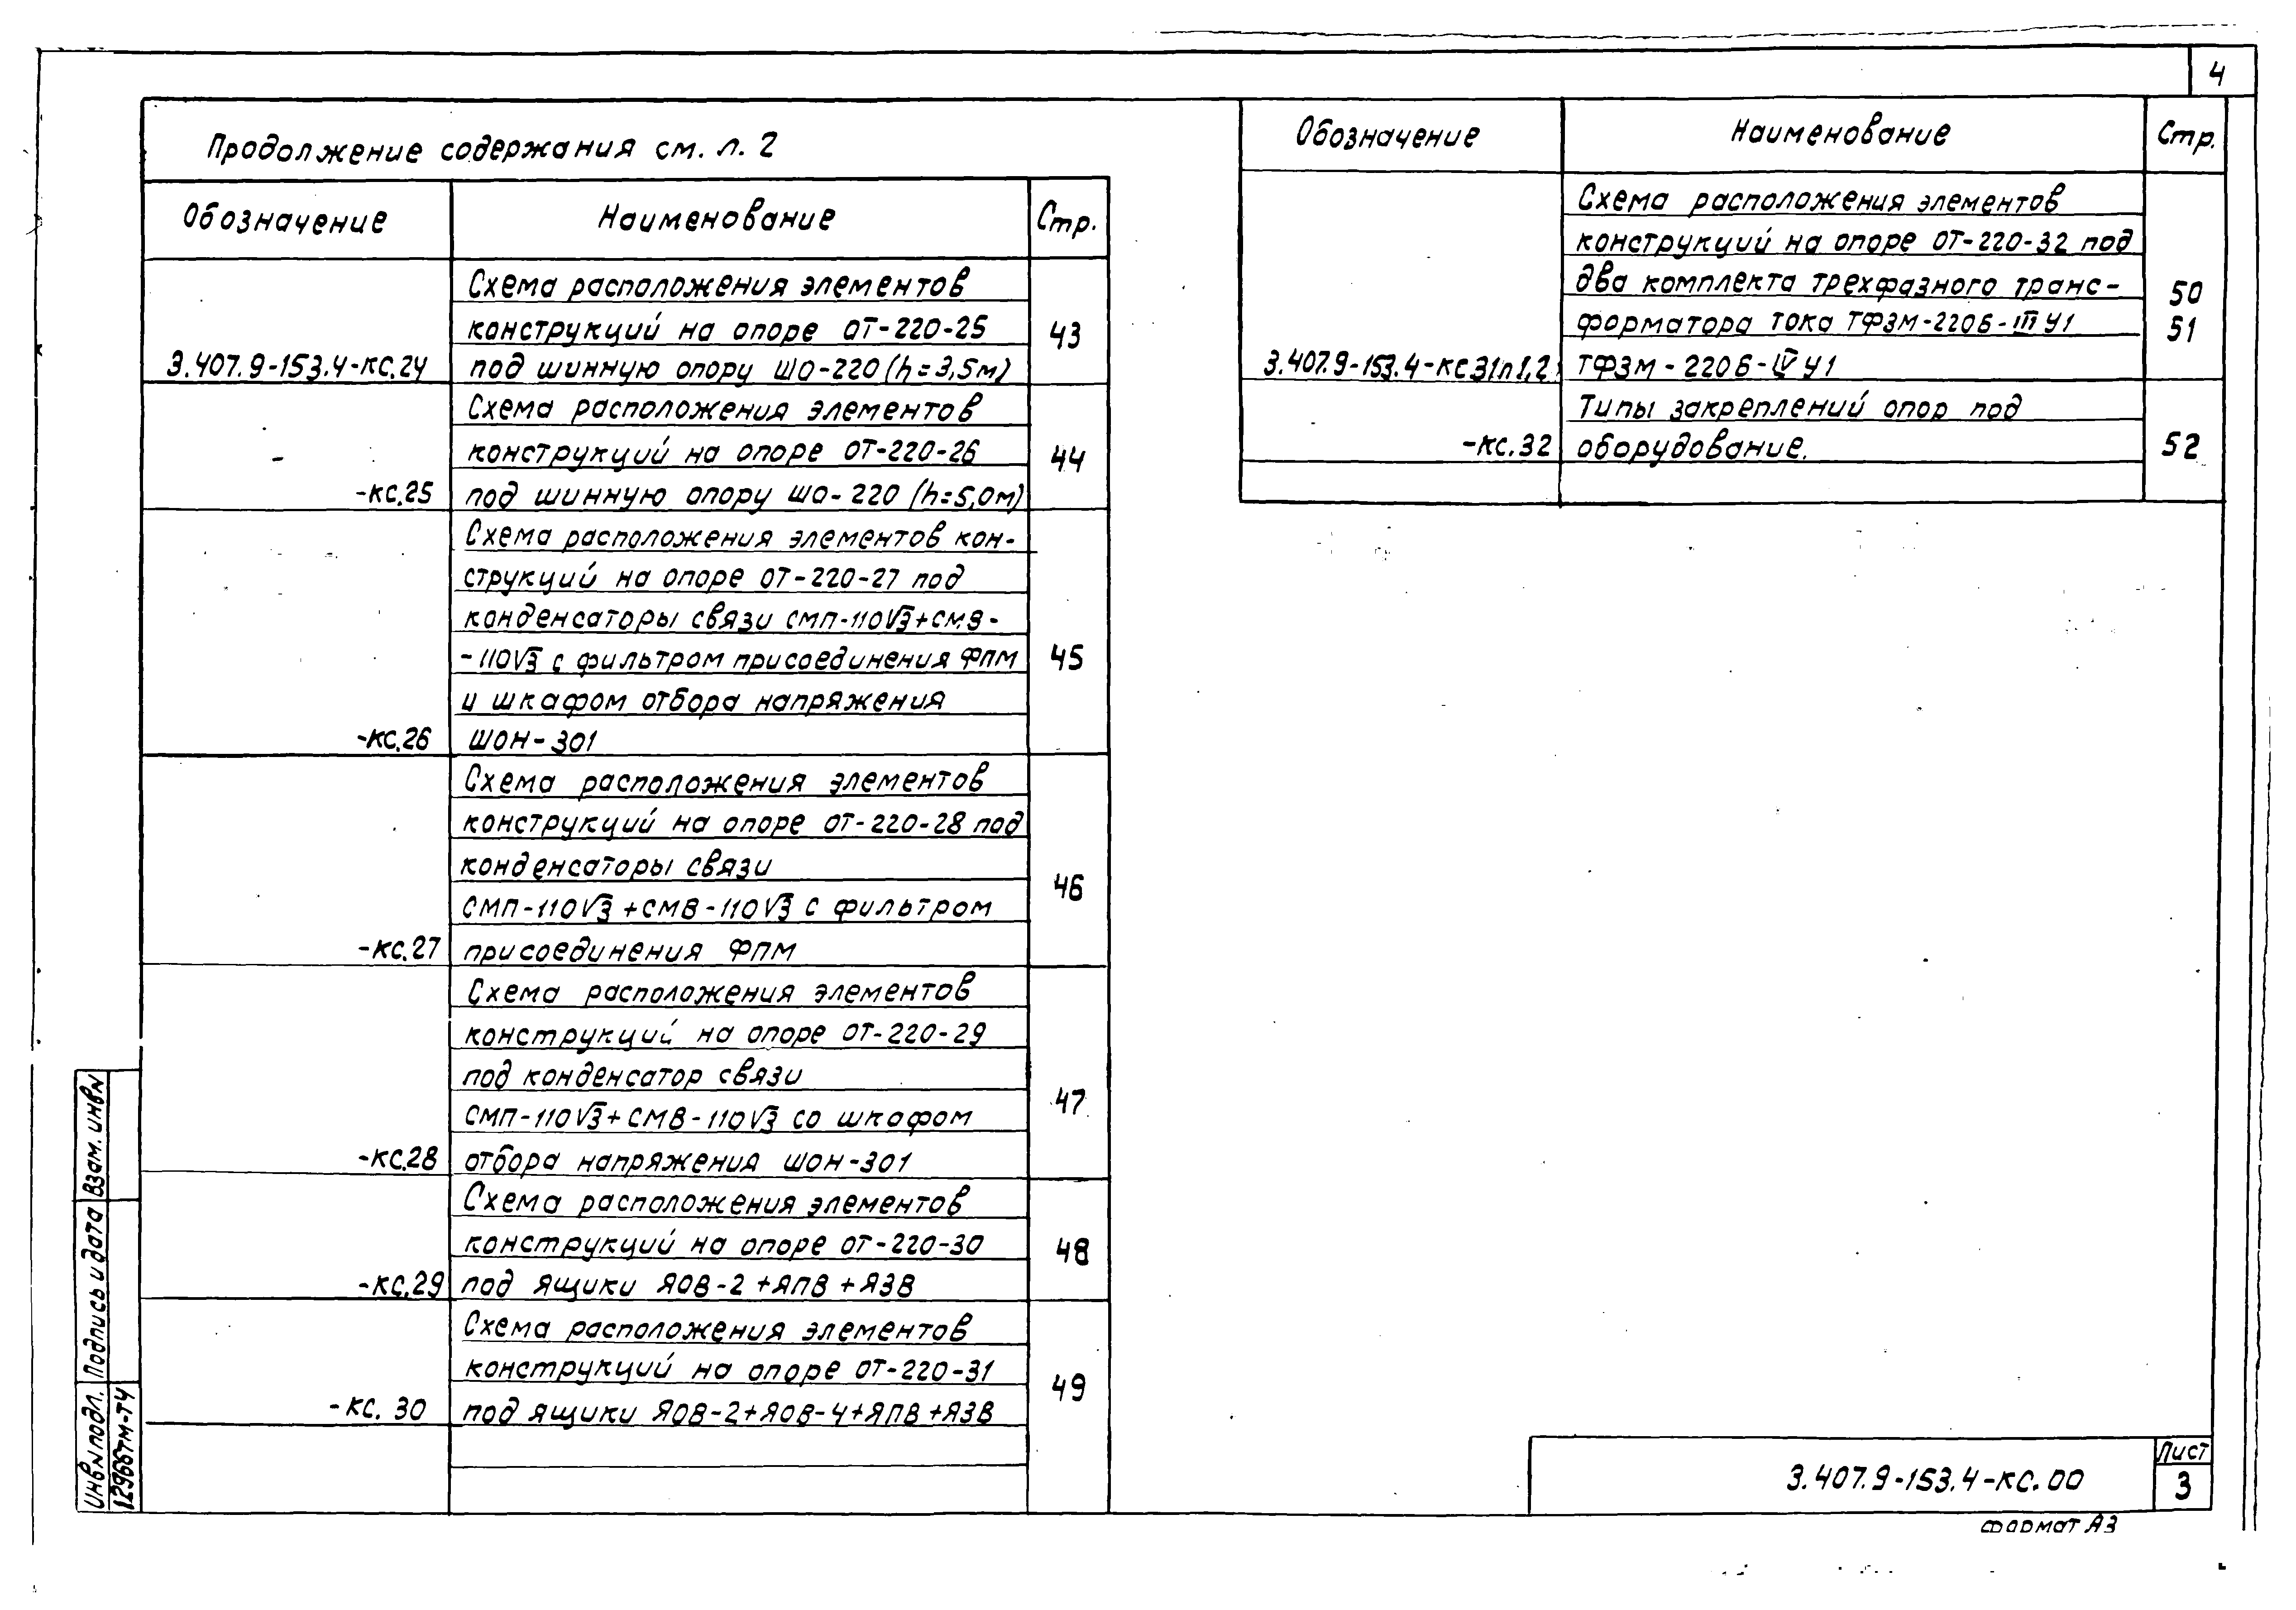 4
Продолжение содержания см. л. 2
Обозначение Наименование Стр.
Схема расположения элементов
конструкций на опоре ОТ-220-25 43
3.407.9-153.4-КС.24 под шинную опору ШО-220 (h=3,5м)
Схема расположения элементов
конструкций на опоре ОТ-220-26 44
-КС.25 под шинную опору ШО-220 (h=5,0м)
Схема расположения элементов кон-
струкций на опоре ОТ-220-27 под
конденсаторы связи СМП-110√3+СМВ-
-110√3 с фильтром присоединения ФПМ 45
и шкафом отбора напряжения
-КС.26 ШОН-301
Схема расположения элементов
конструкций на опоре ОТ-220-28 под
конденсаторы связи 46
СМП-110√3+СМВ-110√3 с фильтром
-КС.27 присоединения ФПМ
Схема расположения элементов
конструкций на опоре ОТ-220-29
под конденсатор связи 47
СМП-110√3+СМВ-110√3 со шкафом
-КС.28 отбора напряжения ШОН-301
Схема расположения элементов
конструкций на опоре ОТ-220-30 48
-КС.29 под ящики ЯОВ-2+ЯПВ+ЯЗВ
Схема расположения элементов
конструкций на опоре ОТ-220-31 49
-КС. 30 под ящики ЯОВ-2+ЯОВ-4+ЯПВ+ЯЗВ
Обозначение Наименование Стр.
Схема расположения элементов
конструкций на опоре ОТ-220-32 под
два комплекта трехфазного транс- 50
форматора тока ТФЗМ-220Б-III У1 51
3.407.9-153.4-КС31л1,2 ТФЗМ-220Б-IV У1
Типы закреплений опор под
-КС.32 оборудование. 52
Взам. инв N
Подпись и дата
Инв N подл.
12966ТМ-Т4
3.407.9-153.4-КС.00
Лист
3
формат А3